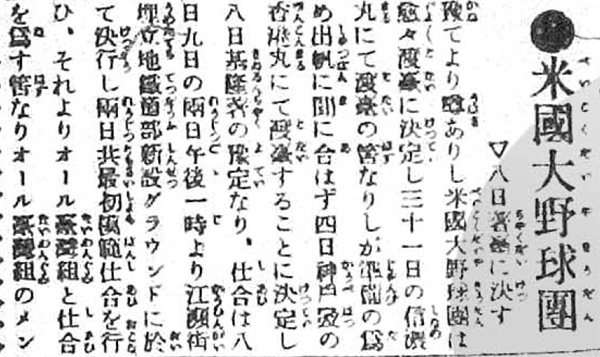 ●米國大野球團
▽八日著臺に決す
豫てより噂ありし米國大野球團は
愈々渡臺に決定し三十一日の信濃
丸にて渡臺の筈なりしが準備の爲
め出帆に間に合はず四日神戸發の
香港丸にて渡臺することに決定し
八日基隆著の豫定なり、仕合は八
日九日の兩日午後一時より江瀕街
埋立地鐵道部新設グラウンドに於
て決行し兩日共最初模範仕合を行
ひ、それよりオール臺灣組と仕合
を爲す筈なりオール臺灣組のメン